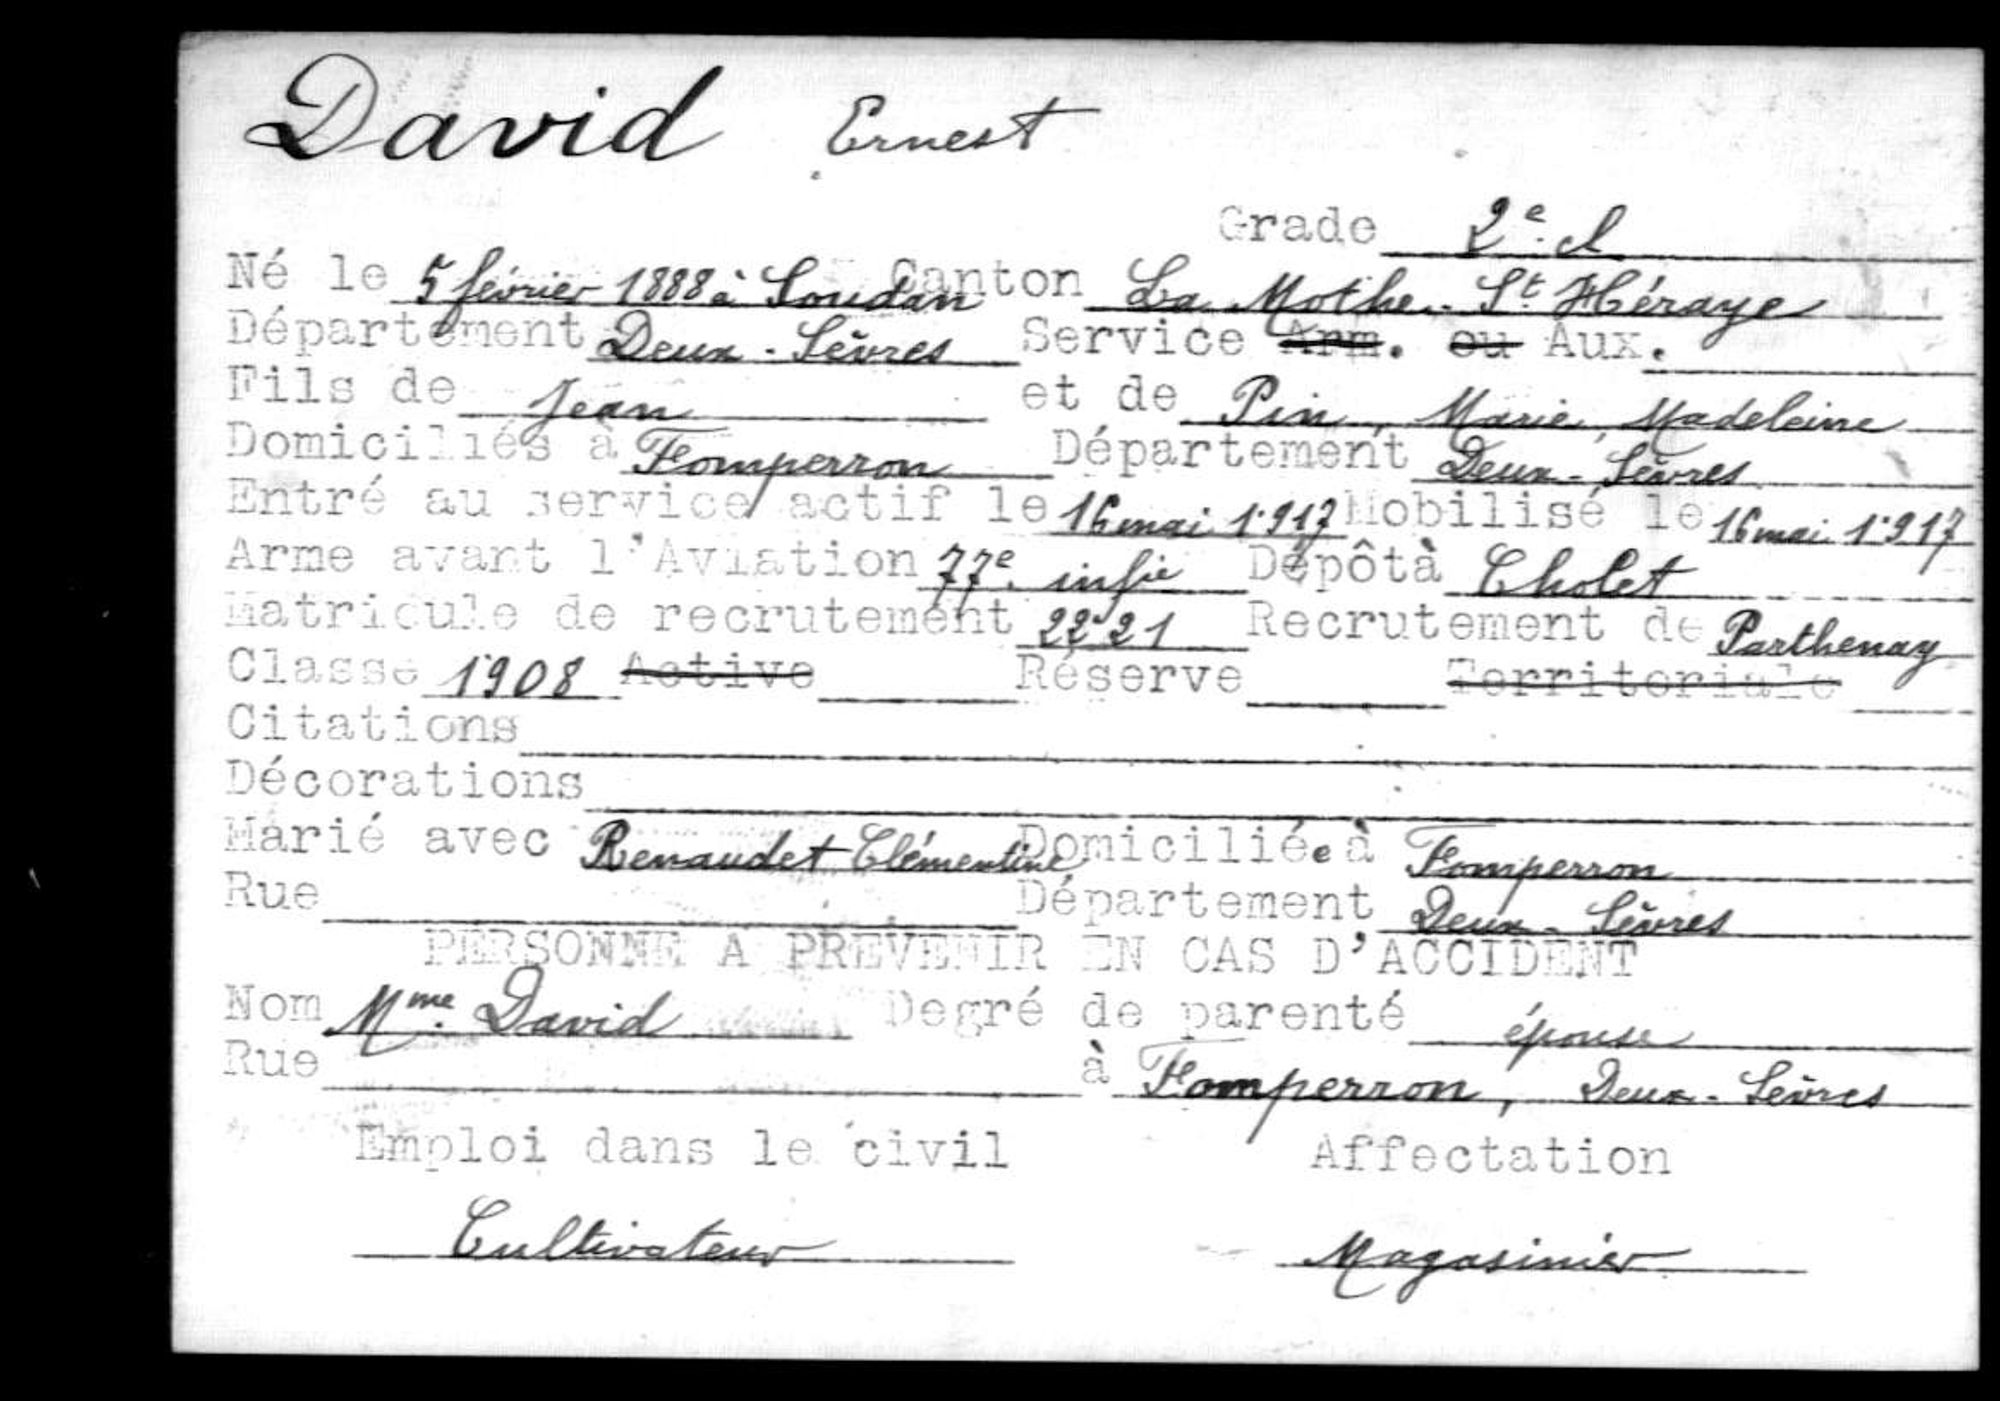 David Ernest
Grade 2e cl
Né le 5 février 1888 à Soudan Canton La Mothe-St Héraye
Département Deux-Sèvres Service Arm. ou Aux.
Fils de Jean et de Pin, Marie, Madeleine
Domiciliés à Fomperron Département Deux-Sèvres
Entré au service actif le 16 mai 1917 Mobilisé le 16 mai 1917
Arme avant l'Aviation 77e infie Dépôt à Cholet
Matricule de recrutement 2221 Recrutement de Parthenay
Classe 1908 Active Réserve Territoriale
Citations
Décorations
Marié avec Renaudet Clémentine Domiciliée à Fomperron
Rue Département Deux-Sèvres
PERSONNE A PREVENIR EN CAS D'ACCIDENT
Nom Mme David Degré de parenté épouse
Rue à Fomperron, Deux-Sèvres
Emploi dans le civil Affectation
Cultivateur Magasinier